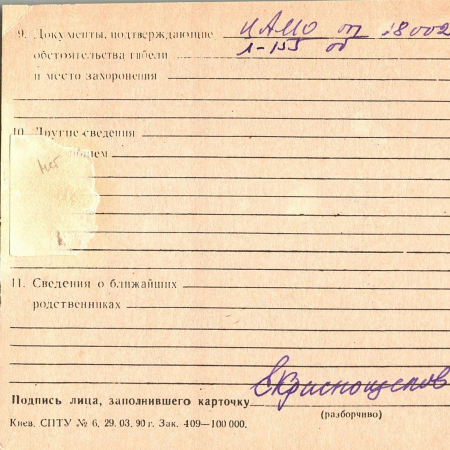 9. Документы, подтверждающие ЦАМО оп 18002
обстоятельства гибели 1-155 об
и место захоронения
10. Другие сведения
Нет
11. Сведения о ближайших
родственниках
Подпись лица, заполнившего карточку Краснощеков
(разборчиво)
Киев. СПТУ № 6, 29. 03. 90 г. Зак. 409—100 000.